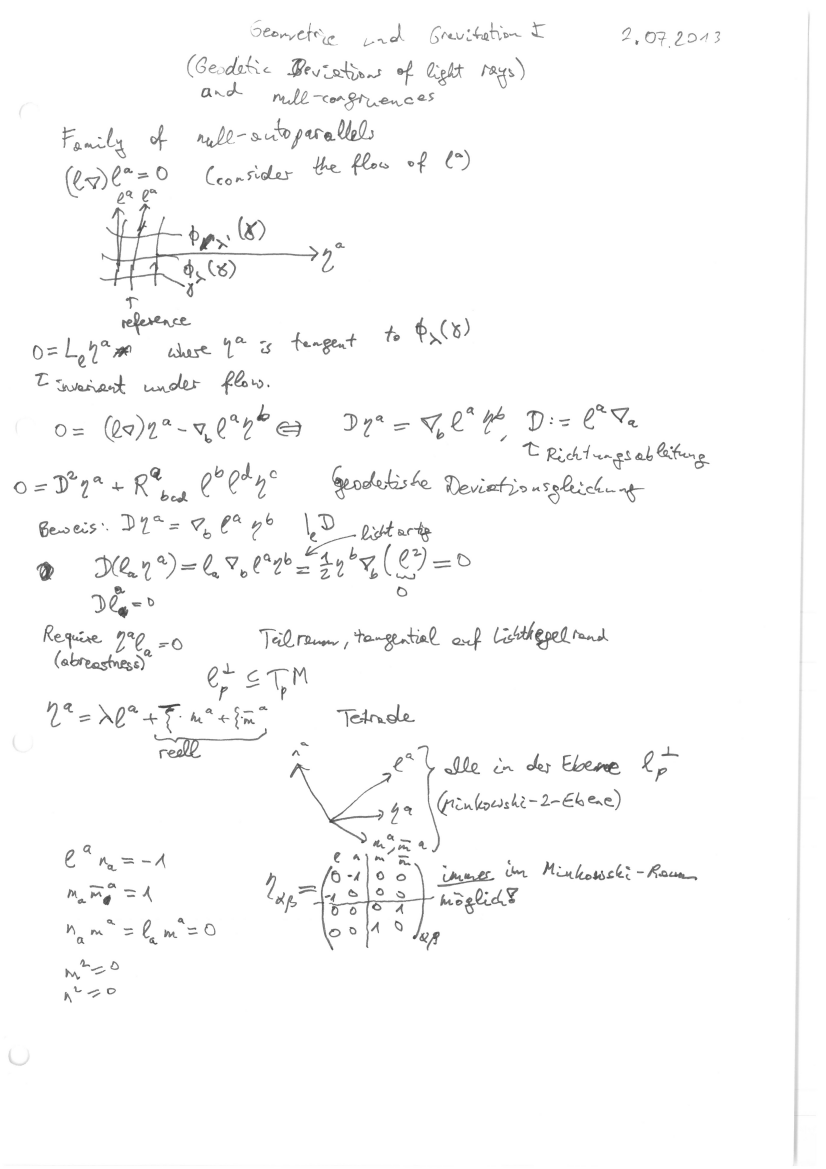 Geometrie und Gravitation I 2.07.2013
(Geodetic Deviations of light rays)
and null-congruences
Family of null-autoparallels
(l∇)lᵃ = 0 (consider the flow of lᵃ)
lᵃ lᵃ
ϕ_λ'(γ)
→ηᵃ
ϕ_λ(γ)
γ
↑
reference
0 = L_l ηᵃ where ηᵃ is tangent to ϕ_λ(γ)
↑ invariant under flow.
0 = (l∇)ηᵃ - ∇_b lᵃ ηᵇ ⇔ Dηᵃ = ∇_b lᵃ ηᵇ, D := lᵃ∇_a
↑ Richtungsableitung
0 = D²ηᵃ + Rᵃ_bcd lᵇ lᵈ ηᶜ Geodetische Deviationsgleichung
Beweis: Dηᵃ = ∇_b lᵃ ηᵇ |_l D
lichtartig
D(l_a ηᵃ) = l_a ∇_b lᵃ ηᵇ = ½ ηᵇ ∇_b (l²) = 0
0
Dlᵃ = 0
Require ηᵃ l_a = 0 Teilraum, tangential auf Lichtkegelrand
(abreastness)
l_p^⊥ ⊆ T_p M
ηᵃ = λlᵃ + ξ̄·mᵃ + ξ·m̄ᵃ Tetrade
reell
nᵃ
lᵃ } alle in der Ebene l_p^⊥
ηᵃ (Minkowski-2-Ebene)
mᵃ, m̄ᵃ
lᵃ n_a = -1
m_a m̄ᵃ = 1
n_a mᵃ = l_a mᵃ = 0
m² = 0
n² = 0
l n m m̄
η_αβ = (0 -1 | 0 0 immer im Minkowski-Raum
-1 0 | 0 0 möglich!
0 0 | 0 1
0 0 | 1 0)_αβ